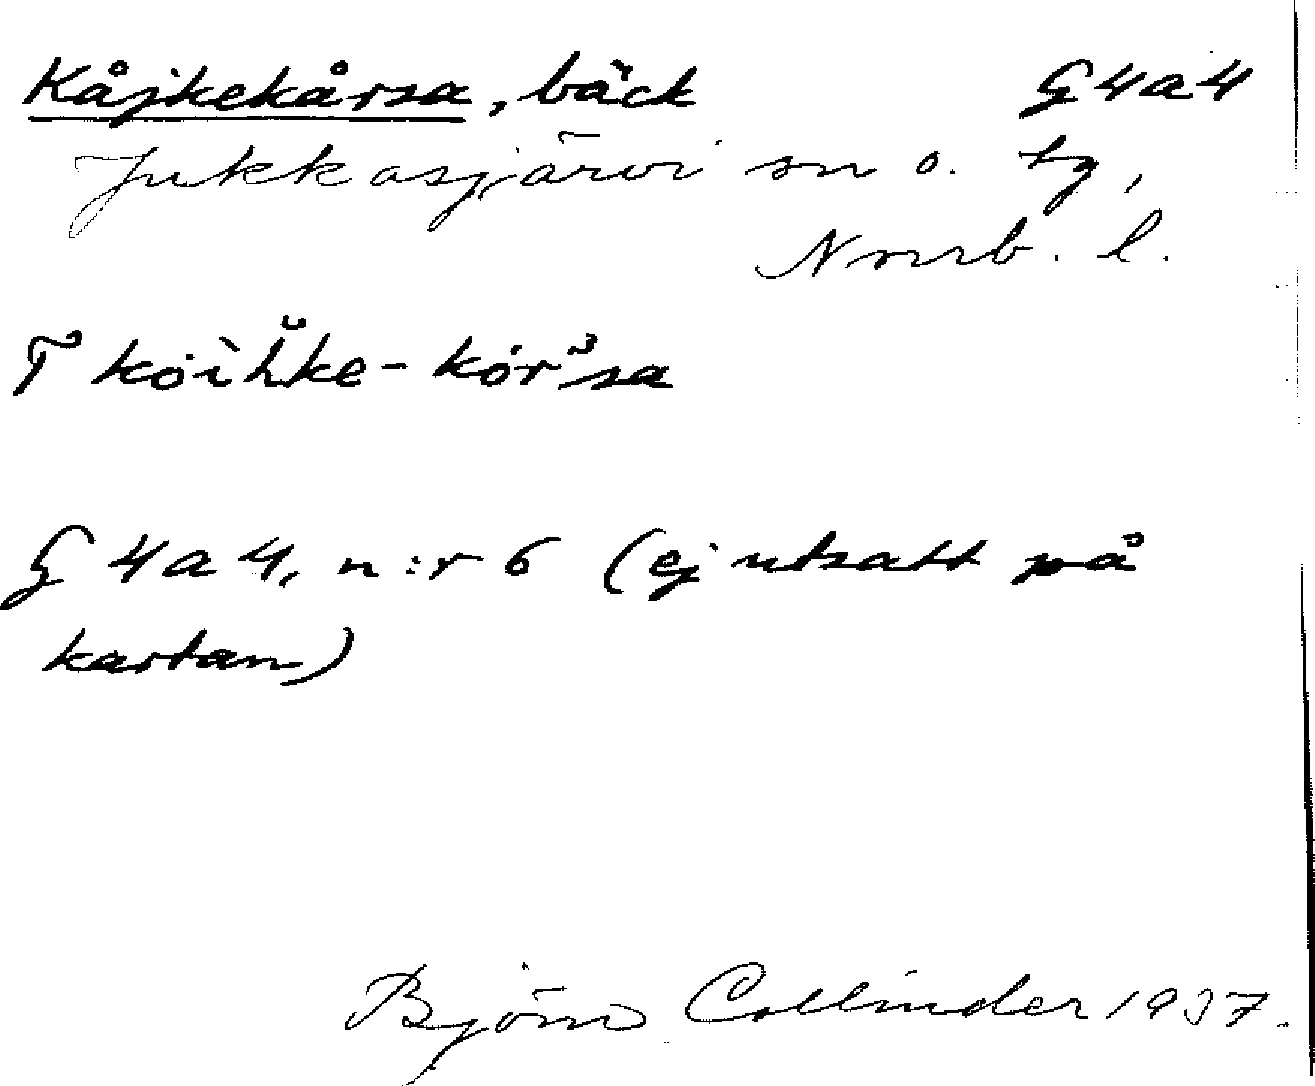 Kåjkekårsa, bäck G4a4
Jukkasjärvi sn o. tg,
Norrb. l.
T
G 4a4, n:r 6 (ej utsatt på
kartan)
Björn Collinder 1937.